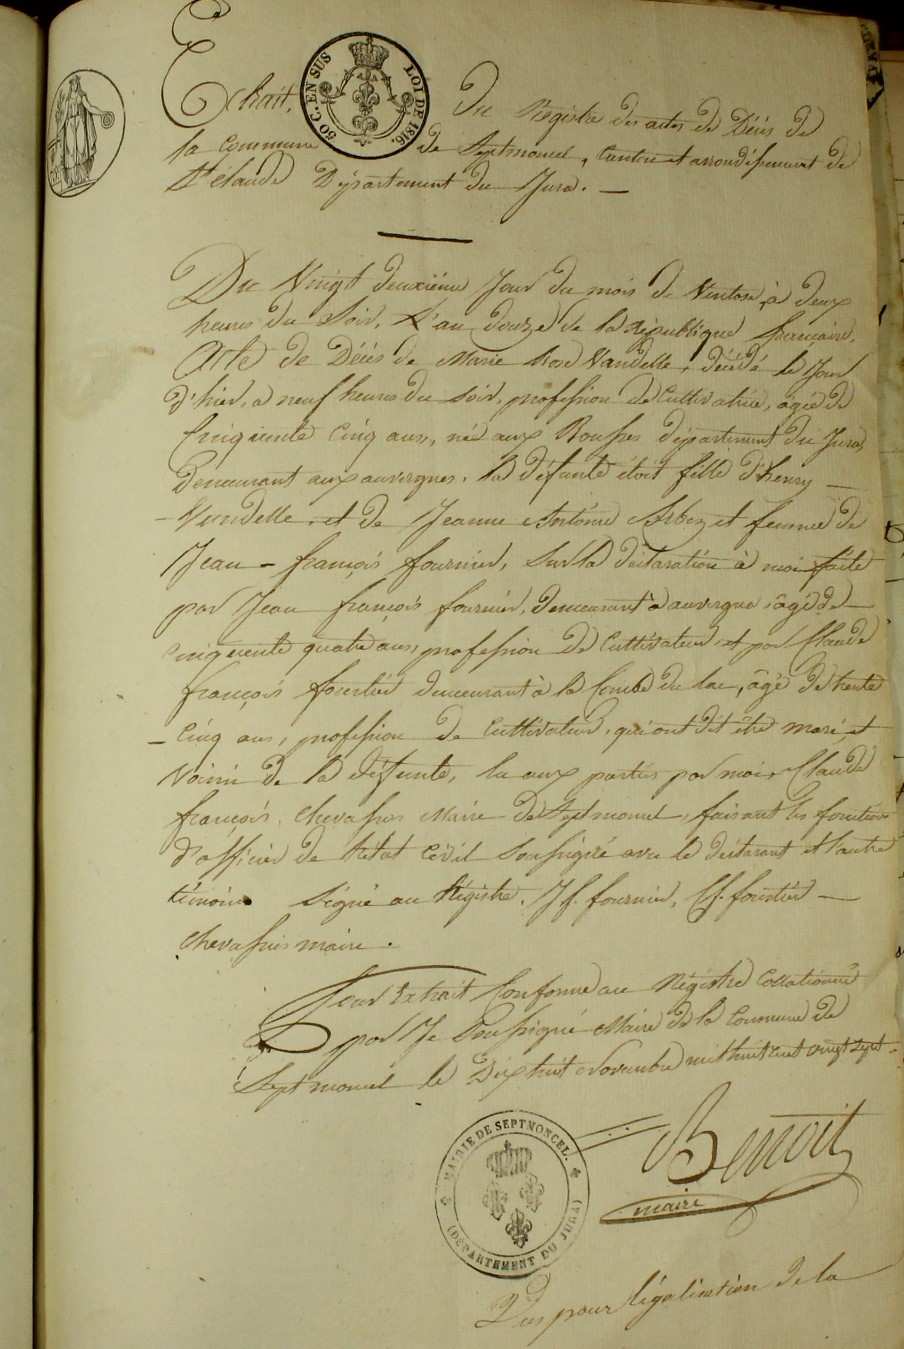 50 C. EN SUS
LOI DE 1816.
Extrait, Du Registre des actes de Décès de
la Commune de Septmoncel, Canton et arrondissement de
St Claude Département du Jura. —
Du Vingt deuxième Jour du mois de Ventose, à deux
heures du Soir, L'an douze de la république française,
Acte de Décès de Marie Rose Vandelle, décédé le Jour
d'hier, a neuf heures du soir, profession de Cultivatrice, agée de
Cinquente Cinq ans, née aux Rousses département du Jura,
Demeurant aux auvergnes. La défunte étoit fille d'henry —
— Vandelle, et de Jeanne Antoine Arbez et femme de
Jean – françois fournier, Sur la déclaration à moi faite
par Jean françois fournier, demeurant à auvergne, âgé de —
Cinquente quatre ans, profession de Cultivateur et par Claude
françois fourtier demeurant à la Combe du lac, âgé de trente
— Cinq ans, profession de Cultivateur, qui ont dit être mari et
Voisin de la défunte, lu aux parties par moi, Claude
françois, Chevassus Maire de Septmoncel, faisant les fonctions
d'officier de l'état Civil Soussigné avec le déclarant et l'autre
témoin Signé au Régistre. J f. fournier, C f. fourtier —
Chevassus maire.
Pour Extrait Conforme au Régistre Collationné
par Je Soussigné Maire de la Commune de
Septmoncel le Dix huit Novembre mil huit cent vingt sept.
Benoit
maire
MAIRIE DE SEPTMONCEL.
(DÉPARTEMENT DU JURA)
Vu pour légalisation de la